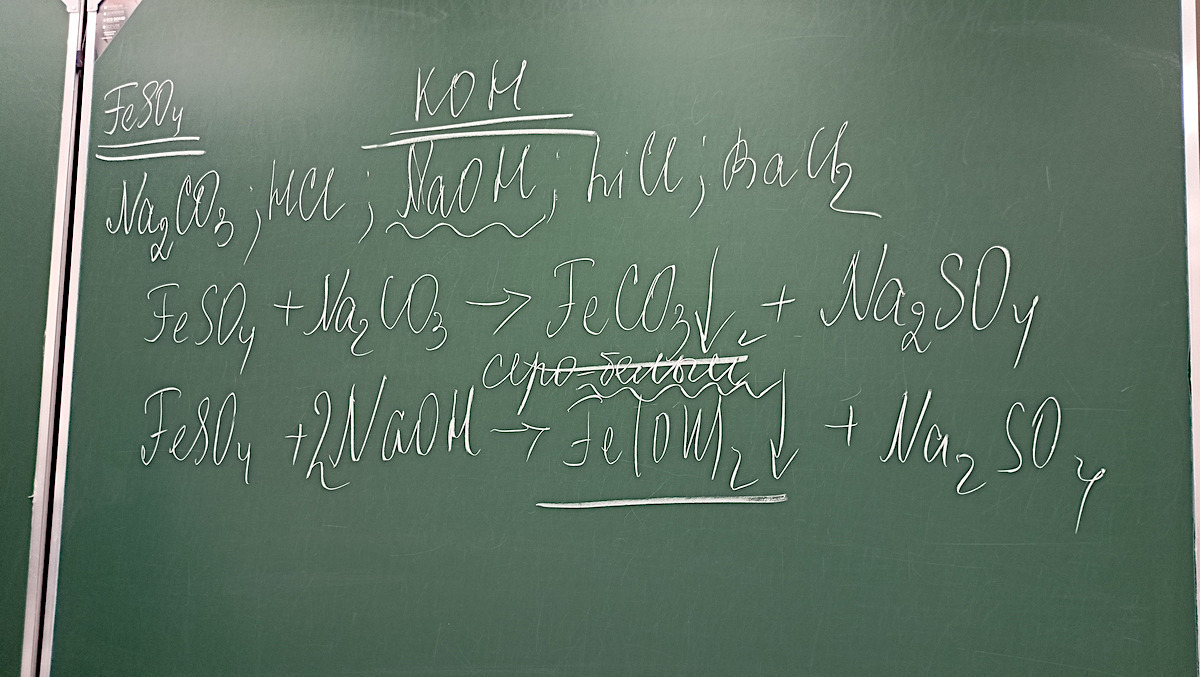 FeSO₄ KOH
Na₂CO₃; HCl; NaOH; LiCl; BaCl₂
FeSO₄ + Na₂CO₃ → FeCO₃↓ + Na₂SO₄
серо-белый
FeSO₄ + 2NaOH → Fe(OH)₂↓ + Na₂SO₄